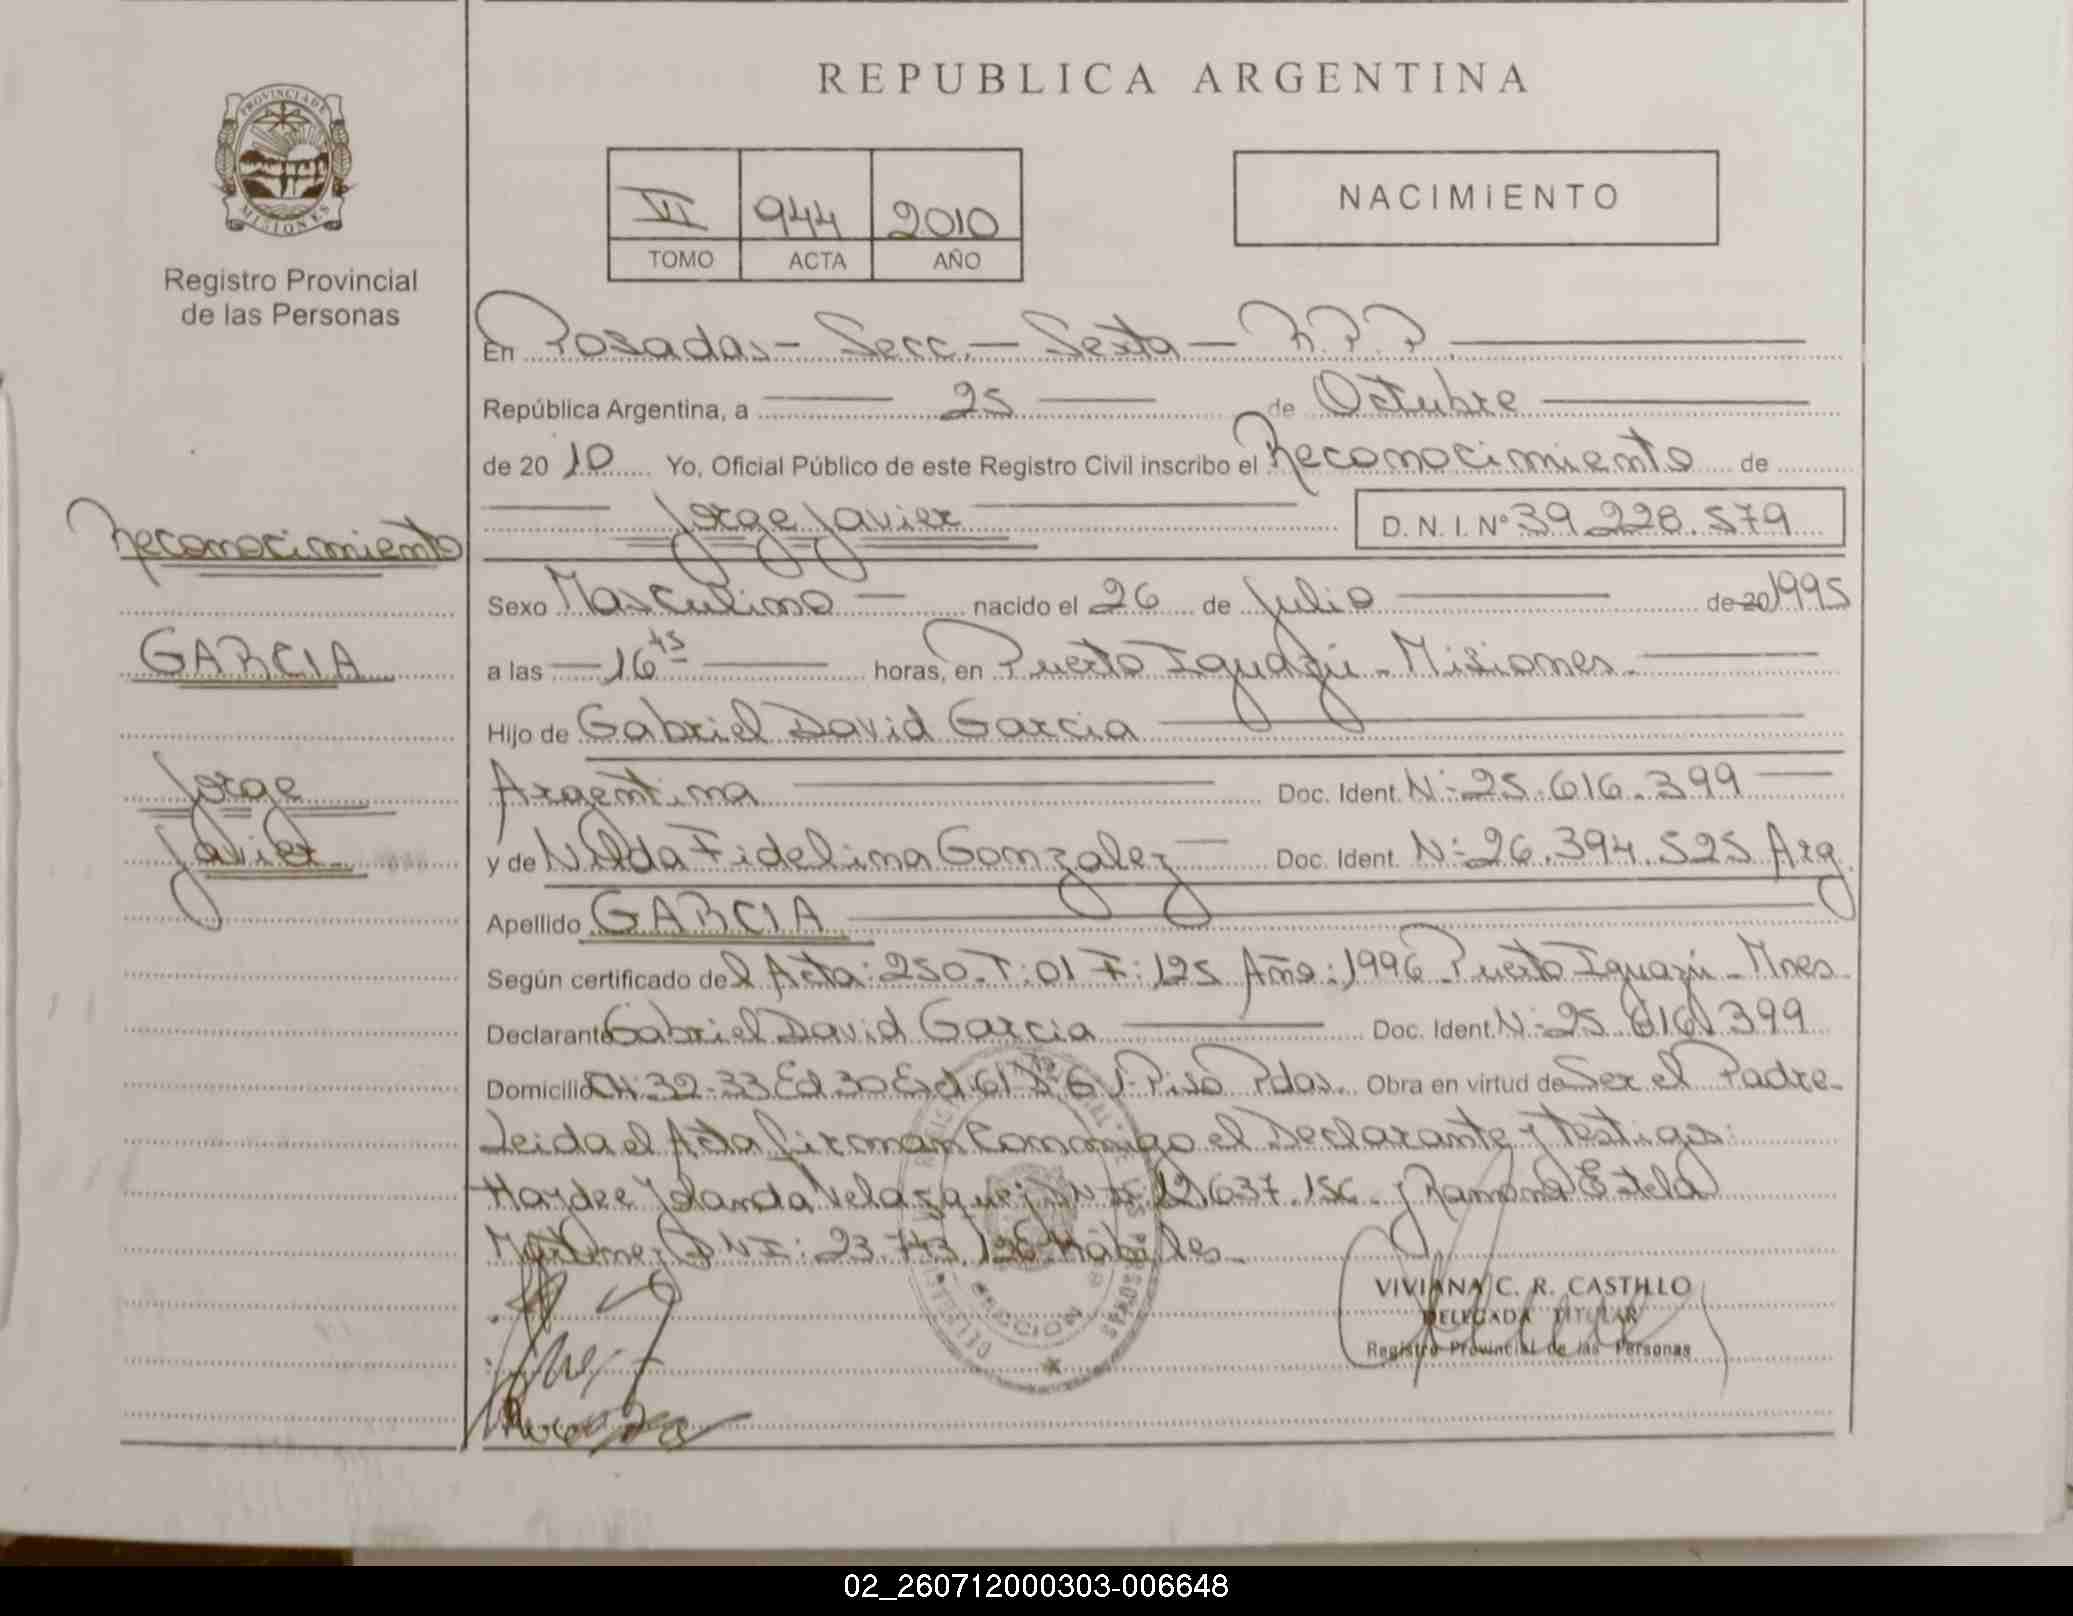 REPUBLICA ARGENTINA
PROVINCIA DE MISIONES
Registro Provincial
de las Personas
VI 944 2010
TOMO ACTA AÑO
NACIMIENTO
En Posadas - Secc. - Sexta - R.P.P.
República Argentina, a 25 de Octubre
de 2010 Yo, Oficial Público de este Registro Civil inscribo el Reconocimiento de
Jorge Javier D. N. I. Nº 39.228.579
Reconocimiento
GARCIA
Jorge
Javier
Sexo Masculino nacido el 26 de Julio de 20 1995
a las 16 45 horas, en Puerto Iguazú - Misiones
Hijo de Gabriel David Garcia
Argentina Doc. Ident. Nº 25.616.399
y de Nilda Fidelina Gonzalez Doc. Ident. Nº 26.394.525 Arg.
Apellido GARCIA
Según certificado del Acta: 250. T: 01 F: 125 Año: 1996 Puerto Iguazú - Mnes.
Declarante Gabriel David Garcia Doc. Ident. Nº 25.616.399
Domicilio CH: 32-33 Ed 30 Piso Pdas. Obra en virtud de Ser el Padre -
Leida el Acta firman Conmigo el Declarante y Testigos:
Haydee Yolanda Velazquez 12.637.156 y Ramona Estela
Martinez DNI: 23.743.136 Hábiles
VIVIANA C. R. CASTILLO
DELEGADA TITULAR
Registro Provincial de las Personas
02_260712000303-006648